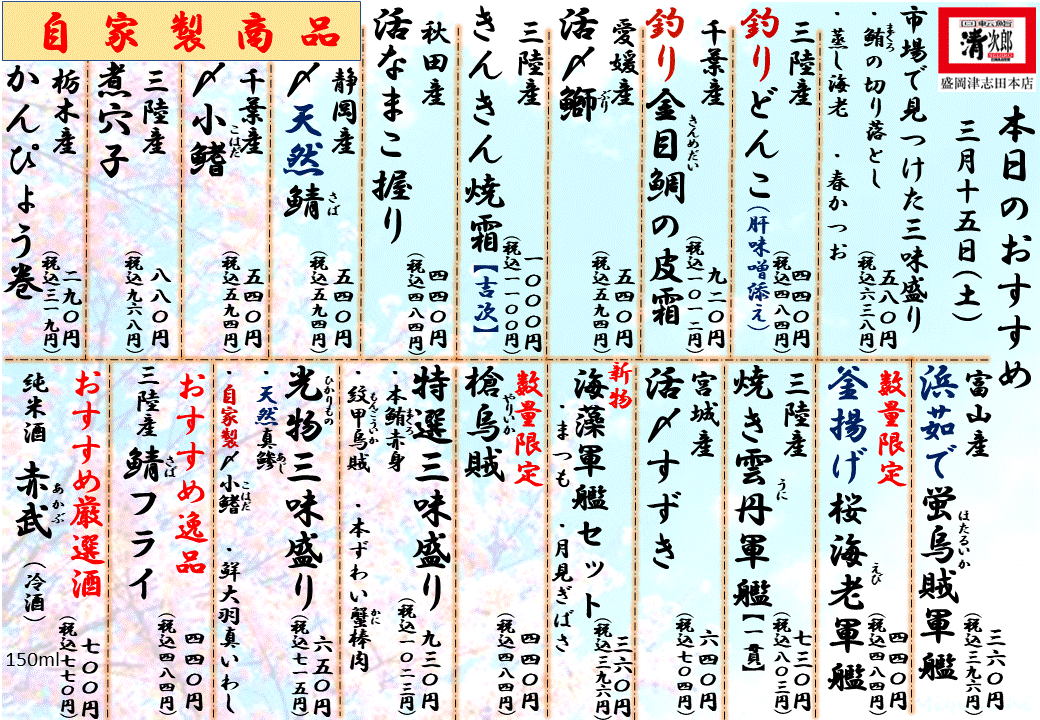 回転鮨
清次郎
盛岡津志田本店
本日のおすすめ
三月十五日(土)
市場で見つけた三味盛り
・鮪の切り落とし
まぐろ
・蒸し海老 ・春かつお
五八〇円
(税込六三八円)
三陸産
釣りどんこ(肝味噌添え)
四四〇円
(税込四八四円)
千葉産
釣り金目鯛の皮霜
きんめだい
九二〇円
(税込一〇一二円)
愛媛産
活〆鰤
ぶり
五四〇円
(税込五九四円)
三陸産
きんきん焼霜【吉次】
一〇〇〇円
(税込一一〇〇円)
秋田産
活なまこ握り
四四〇円
(税込四八四円)
自家製商品
静岡産
〆天然鯖
さば
五四〇円
(税込五九四円)
千葉産
〆小鰭
こはだ
五四〇円
(税込五九四円)
三陸産
煮穴子
八八〇円
(税込九六八円)
栃木産
かんぴょう巻
二九〇円
(税込三一九円)
富山産
浜茹で蛍烏賊軍艦
ほたるいか
三六〇円
(税込三九六円)
数量限定
釜揚げ桜海老軍艦
えび
四四〇円
(税込四八四円)
三陸産
焼き雲丹軍艦【一貫】
うに
七三〇円
(税込八〇三円)
宮城産
活〆すずき
六四〇円
(税込七〇四円)
新物
海藻軍艦セット
・まつも ・月見ぎばさ
三六〇円
(税込三九六円)
数量限定
槍烏賊
やりいか
四四〇円
(税込四八四円)
特選三味盛り
・本鮪赤身
まぐろ
・紋甲烏賊 ・本ずわい蟹棒肉
もんごういか
かに
九三〇円
(税込一〇二三円)
光物三味盛り
ひかりもの
・天然真鯵
あじ
・自家製〆小鰭 ・鮮大羽真いわし
こはだ
六五〇円
(税込七一五円)
おすすめ逸品
三陸産 鯖フライ
さば
四四〇円
(税込四八四円)
おすすめ厳選酒
純米酒 赤武 (冷酒)
あかぶ
150ml
七〇〇円
(税込七七〇円)